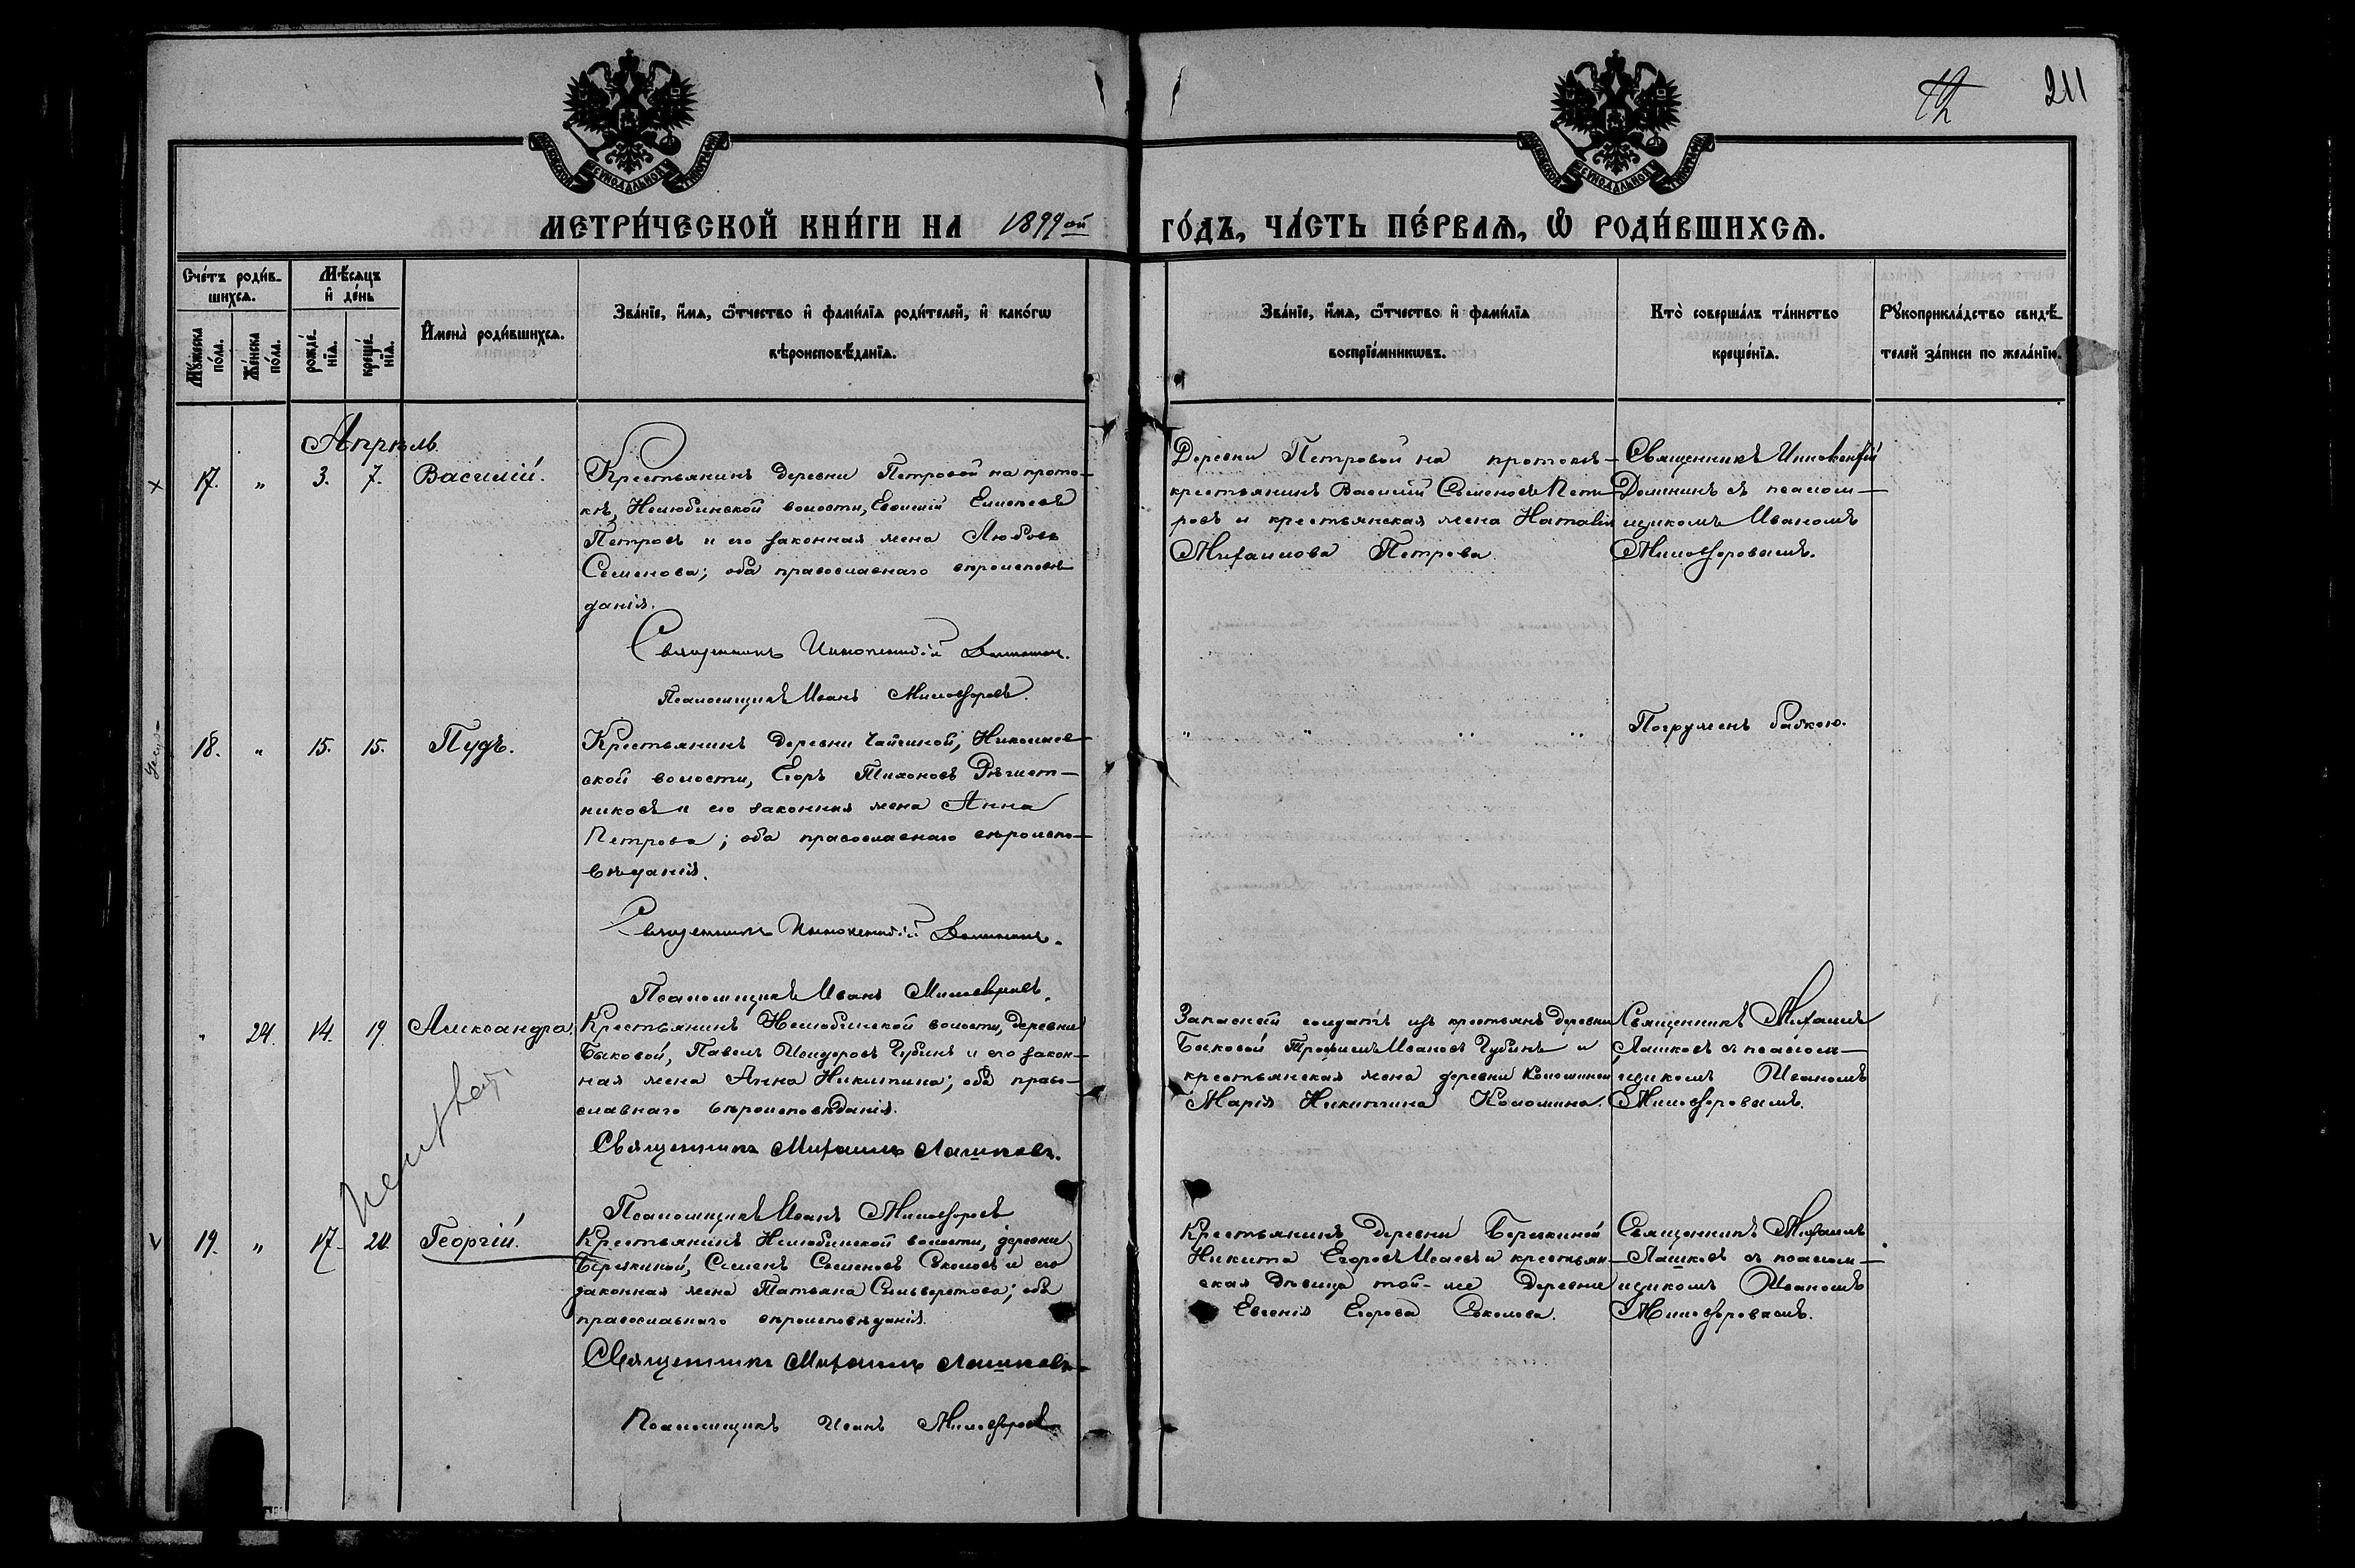 211
МЕТРИ́ЧЕСКОЙ КНИ́ГИ НА 1899ой ГО́ДЪ, ЧА́СТЬ ПЕ́РВАѦ, Ѿ РОДИ́ВШИХСѦ.
Сче́тъ роди́в-
шихся.
Мꙋ́жеска
по́ла.
Же́нска
по́ла.
Мѣ́сяцъ
и де́нь
рожде́-
нїя.
креще́-
нїя.
Имена̀ роди́вшихся.
Зва́нїе, и́мя, ѿтчество и фами́лїя роди́телей, и како́гѡ
вѣроисповѣ́данїя.
Зва́нїе, и́мя, ѿтчество и фами́лїя
воспрїе́мникѡвъ.
Кто̀ соверша́лъ та́инство
креще́нїя.
Рꙋкоприкла́дство свидѣ́-
телей за́писи по жела́нїю.
Апрѣль
17. " 3. 7. Василій.
Крестьянинъ деревни Петровой на прото-
кѣ, Нелюбинской волости, Евсигній
Петровъ и его законная жена Любовь
Семенова; оба православнаго вѣроисповѣ
данія.
Священникъ Иннокентій Доминин.
Псаломщикъ Иванъ Милофоровъ.
Деревни Петровой на протокѣ-
крестьянинъ Василій Семеновъ Пет
ровъ и крестьянская жена Наталія
Михаилова Петрова.
Священникъ Иннокентій
Доминин съ псалом-
щикомъ Иваномъ
Милофоровымъ.
18. " 15. 15. Пудъ.
Крестьянинъ деревни Чагиной, Николаев-
ской волости, Егоръ Тихоновъ
никовъ и его законная жена Анна
Петрова; оба православнаго вѣроиспо-
вѣданія.
Священникъ Иннокентій Доминин.
Псаломщикъ Иванъ Милофоровъ.
" " " "
Погруженъ бабкою.
" 24. 14. 19. Александра.
Крестьянинъ Нелюбинской волости, деревни
Быковой, Павелъ Исидоровъ Губинъ и его закон-
ная жена Анна Никитина; оба право-
славнаго вѣроисповѣданія.
Священникъ Михаилъ Лашковъ.
Псаломщикъ Иванъ Милофоровъ
Запасной солдатъ изъ крестьянъ деревни
Быковой Трофимъ Ивановъ Губинъ и
крестьянская жена деревни Коломиной
Марія Никитина Коломина.
Священникъ Михаилъ
Лашковъ съ псалом-
щикомъ Иваномъ
Милофоровымъ.
19. " 17. 20. Георгій.
Крестьянинъ Нелюбинской волости, деревни
Березкиной, Семенъ Семеновъ Соколовъ и его
законная жена Татьяна Сильверстова; оба
православнаго вѣроисповѣданія.
Священникъ Михаилъ Лашковъ
Псаломщикъ Иванъ Милофоровъ
Крестьянинъ деревни Березкиной
Никита Егоровъ Исаевъ и крестьян-
ская дѣвица той-же деревни
Евгенія Егорова Соколова.
Священникъ Михаилъ
Лашковъ съ псалом-
щикомъ Иваномъ
Милофоровымъ.